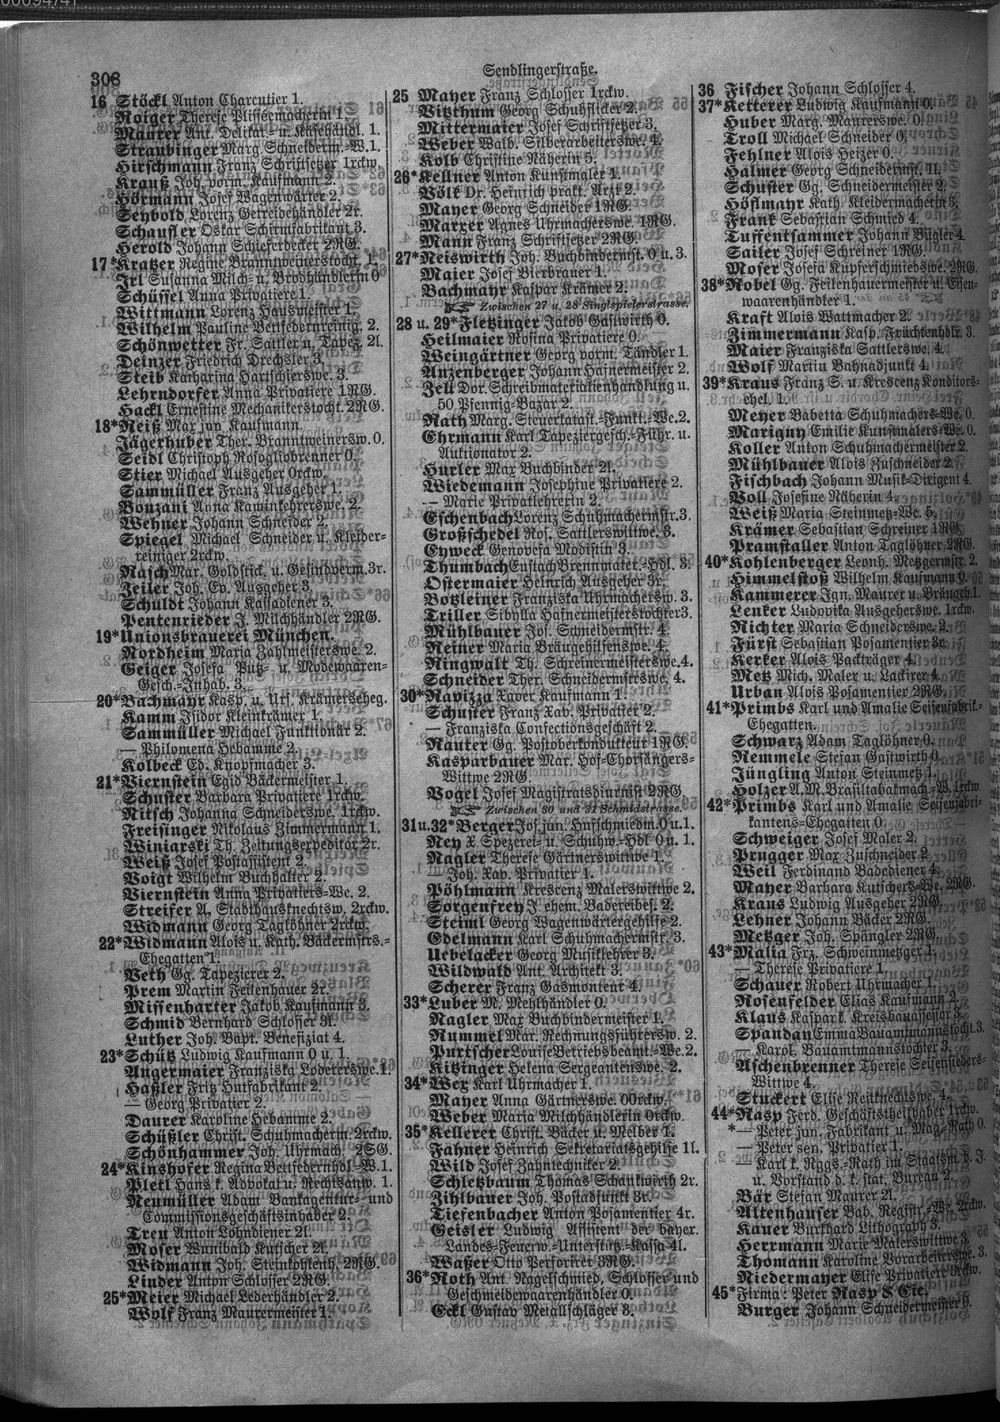 308
Sendlingerstraße.
16 Stöckl Anton Charcutier 1.
Roiger Therese Plissemacherin 1.
Maurer Ant. Delikat.- u. Käsehandl. 1.
Straubinger Marg. Schneiderm.-W. 1.
Hirschmann Franz Schriftsetzer 1rckw.
Krauß Joh. vorm. Kaufmann 2.
Hörmann Josef Wagenwärter 2.
Seybold Lorenz Getreidehändler 2r.
Schaufler Oskar Schirmfabrikant 3.
Herold Johann Schieferdecker 2RG.
17*Kratzer Regine Branntweinerstocht. 1.
Irl Susanna Milch- u. Brodhändlerin 0
Schüssel Anna Privatiere 1.
Wittmann Lorenz Hausmeister 1.
Wilhelm Pauline Bettfedernreinig. 2.
Schönwetter Fr. Sattler u. Tapez. 2l.
Deinzer Friedrich Drechsler 3.
Steib Katharina Hartschierswe. 3.
Lehrndorfer Anna Privatiere 1RG.
Hackl Ernestine Mechanikerstocht. 2RG.
18*Reiß Max jun. Kaufmann.
Jägerhuber Ther. Branntweinersw. 0.
Seidl Christoph Rosogliobrenner 0.
Stier Michael Ausgeher 0rckw.
Sammüller Franz Ausgeher 1.
Bonzani Anna Kaminkehrerswe. 2.
Wehner Johann Schneider 2.
Spiegel Michael Schneider u. Kleider-
reiniger 2rckw.
Rasch Mar. Goldstick. u. Gesindverm. 3r.
Zeiler Joh. Ev. Ausgeher 3.
Schuldt Johann Kassadiener 3.
Pentenrieder J. Milchhändler 2RG.
19*Unionsbrauerei München.
Nordheim Maria Zahlmeisterswe. 2.
Geiger Josefa Putz- u. Modewaaren-
Gesch.-Inhab. 3.
20*Bachmayr Kasp. u. Urs. Krämerseheg.
Kamm Isidor Kleinkrämer 1.
Sammüller Michael Funktionär 2.
— Philomena Hebamme 2.
Kolbeck Ed. Knopfmacher 3.
21*Viernstein Egid Bäckermeister 1.
Schuster Barbara Privatiere 1rckw.
Nitsch Johanna Schneiderswe. 1rckw.
Freisinger Nikolaus Zimmermann 1.
Winiarski Th. Zeitungsexpeditor 2r.
Weiß Josef Postassistent 2.
Voigt Wilhelm Buchhalter 2.
Viernstein Anna Privatiers-We. 2.
Streifer A. Stadthausknechtsw. 2rckw.
Widmann Georg Taglöhner 2rckw.
22*Widmann Alois u. Kath. Bäckermstrs.-
Ehegatten 1.
Veth Gg. Tapezierer 2.
Prem Martin Feilenhauer 2r.
Missenharter Jakob Kaufmann 3.
Schmid Bernhard Schlosser 3l.
Luther Joh. Bapt. Benefiziat 4.
23*Schütz Ludwig Kaufmann 0 u. 1.
Angermaier Franziska Lodererswe. 1.
Haßler Fritz Hutfabrikant 2.
— Georg Privatier 2.
Daurer Karoline Hebamme 2.
Schüßler Christ. Schuhmacherm. 2rckw.
Schönhammer Joh. Uhrmach. 2SG.
24*Kinshofer Regina Bettfedernhdl.-W. 1.
Pletl Hans k. Advokat u. Rechtsanw. 1.
Neumüller Adam Bankagentur- und
Commissionsgeschäftsinhaber 2.
Treu Anton Lohndiener 2l.
Moser Wunibald Kutscher 2l.
Widmann Joh. Steinkohlenh. 2RG.
Linder Anton Schlosser 2RG.
25*Meier Michael Lederhändler 2.
Wolf Franz Maurermeister 1.
25 Mayer Franz Schlosser 1rckw.
Vitzthum Georg Schuhflicker 2.
Mittermaier Josef Schriftsetzer 3.
Weber Walb. Silberarbeiterswe. 4.
Kolb Christine Näherin 5.
26*Kellner Anton Kunstmaler 1.
Völk Dr. Heinrich prakt. Arzt 2.
Mayer Georg Schneider 1RG.
Marxer Agnes Uhrmacherswe. 1RG.
Mann Franz Schriftsetzer 2RG.
27*Neiswirth Joh. Buchbindermst. 0 u. 3.
Maier Josef Bierbrauer 1.
Bachmayr Kaspar Krämer 2.
Zwischen 27 u. 28 Singlspielerstrasse.
28 u. 29*Fletzinger Jakob Gastwirth 0.
Heilmaier Rosina Privatiere 0.
Weingärtner Georg vorm. Tändler 1.
Anzenberger Johann Hafnermeister 2.
Zell Dor. Schreibmaterialienhandlung u.
50 Pfennig-Bazar 2.
Rath Marg. Steuerkatast.-Funkt.-We. 2.
Ehrmann Karl Tapeziergesch.-Führ. u.
Auktionator 2.
Hurler Max Buchbinder 2l.
Wiedemann Josephine Privatiere 2.
— Marie Privatlehrerin 2.
Eschenbach Lorenz Schuhmachermstr. 3.
Großschedel Ros. Sattlerswittwe. 3.
Eyweck Genovefa Modistin 3.
Thumbach Eustach Brennmater.-Hdl. 3.
Ostermaier Heinrich Ausgeher 3r.
Botzleiner Franziska Uhrmachersw. 3.
Triller Sibylla Hafnermeisterstochter 3.
Mühlbauer Jos. Schneidermstr. 4.
Reiner Maria Bräugehilfenswe. 4.
Ringwalt Th. Schreinermeisterswe. 4.
Schneider Ther. Schneidermstrswe. 4.
30*Ravizza Xaver Kaufmann 1.
Schuster Franz Xav. Privatier 2.
— Franziska Confectionsgeschäft 2.
Rauter Gg. Postoberkondukteur 1RG.
Kasparbauer Mar. Hof-Chorsängers-
Wittwe 2RG.
Vogel Josef Magistratsdiurnist 2RG.
Zwischen 30 und 31 Schmidstrasse.
31 u. 32*Berger Jos. jun. Hufschmiedm. 0 u. 1.
Ney X. Spezerei- u. Schuhw.-Hdl. 0 u. 1.
Nagler Therese Gärtnerswittwe 1.
— Joh. Xav. Privatier 1.
Pöhlmann Kreszenz Malerswittwe 2.
Sorgenfrey J. ehem. Badereibes. 2.
Steiml Georg Wagenwärtergehilfe 2.
Edelmann Karl Schuhmachermstr. 3.
Uebelacker Georg Musiklehrer 3.
Wildwald Ant. Architekt 3.
Scherer Franz Gasmonteur 4.
33*Luber M. Mehlhändler 0.
Nagler Max Buchbindermeister 1.
Rummel Mar. Rechnungsführersw. 2.
Purtscher Louise Betriebsbeamt.-We. 2.
Kitzinger Helena Sergeantenswe. 2.
34*Wex Karl Uhrmacher 1.
Mayer Anna Gärtnerswe. 00rckw.
Weber Maria Milchhändlerin 0rckw.
35*Kellerer Christ. Bäcker u. Melber 1.
Fahner Heinrich Sekretariatsgehilfe 1l.
Wild Josef Zahntechniker 2.
Schletzbaum Thomas Schankwirth 2r.
Zihlbauer Joh. Postadjunkt 3r.
Tiefenbacher Anton Posamentier 4r.
Geisler Ludwig Assistent der bayer.
Landes-Feuerw.-Unterstütz.-Kassa 4l.
Waßer Otto Performer 3RG.
36*Roth Ant. Nagelschmied, Schlosser und
Geschmeidewaarenhändler 0.
Eckl Gustav Metallschläger 3.
36 Fischer Johann Schlosser 4.
37*Ketterer Ludwig Kaufmann 0.
Huber Marg. Maurerswe. 0.
Troll Michael Schneider 0.
Fehlner Alois Heizer 0.
Halmer Georg Schneidermst. 1l.
Schuster Gg. Schneidermeister 2.
Höflmayr Kath. Kleidermacherin 3.
Frank Sebastian Schmied 4.
Tuffentsammer Johann Bügler 4.
Sailer Josef Schreiner 1RG.
Moser Josefa Kupferschmiedswe. 2RG.
38*Nobel Gg. Feilenhauermeister u. Eisen-
waarenhändler 1.
Kraft Alois Wattmacher 2.
Zimmermann Kasp. Früchtenhdlr. 3.
Maier Franziska Sattlerswe. 4.
Wolf Martin Bahnadjunkt 4.
39*Kraus Franz S. u. Kreszenz Konditors-
ehel. 1.
Meyer Babetta Schuhmachers-We. 0.
Marigny Emilie Kunstmalers-We. 0.
Koller Anton Schuhmachermeister 2.
Mühlbauer Alois Zuschneider 2.
Fischbach Johann Musik-Dirigent 4.
Voll Josefine Näherin 4.
Weiß Maria Steinmetz-We. 5.
Krämer Sebastian Schreiner 1RG.
Pramstaller Anton Taglöhner 2RG.
40*Kohlenberger Leonh. Metzgermstr. 2.
Himmelstoß Wilhelm Kaufmann 0.
Kammerer Ign. Maurer u. Bräugeh. 1.
Lenker Ludovika Ausgeherswe. 1rckw.
Richter Maria Schneiderswe. 2.
Fürst Sebastian Posamentier 3r.
Kerker Alois Packträger 4.
Metz Mich. Maler u. Lackirer 4.
Urban Alois Posamentier 2RG.
41*Primbs Karl und Amalie Seifenfabrik.-
Ehegatten.
Schwarz Adam Taglöhner 0.
Remmele Stefan Gastwirth 0.
Jüngling Anton Steinmetz 1.
Holzer A. M. Brasiltabakmach.-W. 1rckw.
42*Primbs Karl und Amalie Seifenfabri-
kantens-Ehegatten 0.
Schweiger Josef Maler 2.
Prugger Max Zuschneider 2.
Weil Ferdinand Badediener 4.
Mayer Barbara Kutschers-We. 2RG.
Kraus Ludwig Ausgeher 2RG.
Lehner Johann Bäcker 2RG.
Metzger Joh. Spängler 2RG.
43*Malia Frz. Schweinmetzger 1.
— Therese Privatiere 1.
Schauer Robert Uhrmacher 1.
Rosenfelder Elias Kaufmann 2.
Klaus Kaspar k. Kreisbauassessor 3.
Spandau Emma Bauamtmannstocht. 3.
— Karol. Bauamtmannstochter 3.
Aschenbrenner Therese Seifensieders-
Wittwe 4.
Stuckert Elise Reitknechtswe. 4.
44*Rasp Ferd. Geschäftstheilhaber 1rckw.
*— Peter jun. Fabrikant u. Mag.-Rath 0.
— Peter sen. Privatier 1.
— Karl k. Rggs.-Rath im Staatsm. d. J.
u. Vorstand d. k. stat. Bureau 2.
Bär Stefan Maurer 2l.
Altenhauser Bab. Registr.-We. 2rckw.
Kauer Burkhard Lithograph 3.
Herrmann Marie Malerswittwe 3.
Thomann Karoline Vorarbeiterswe. 3.
Niedermayer Elise Privatiere 3rckw.
45*Firma: Peter Rasp & Cie.
Burger Johann Schneidermeister 0.